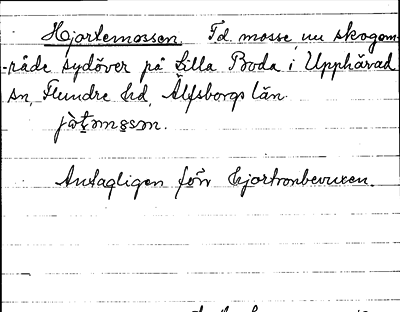 Hjortemossen. Fd. mosse, nu skogsom-
råde sydöver på Lilla Boda i Upphärad
sn, Flundre hd, Älfsborgs län.
Antagligen förr hjortronbevuxen.